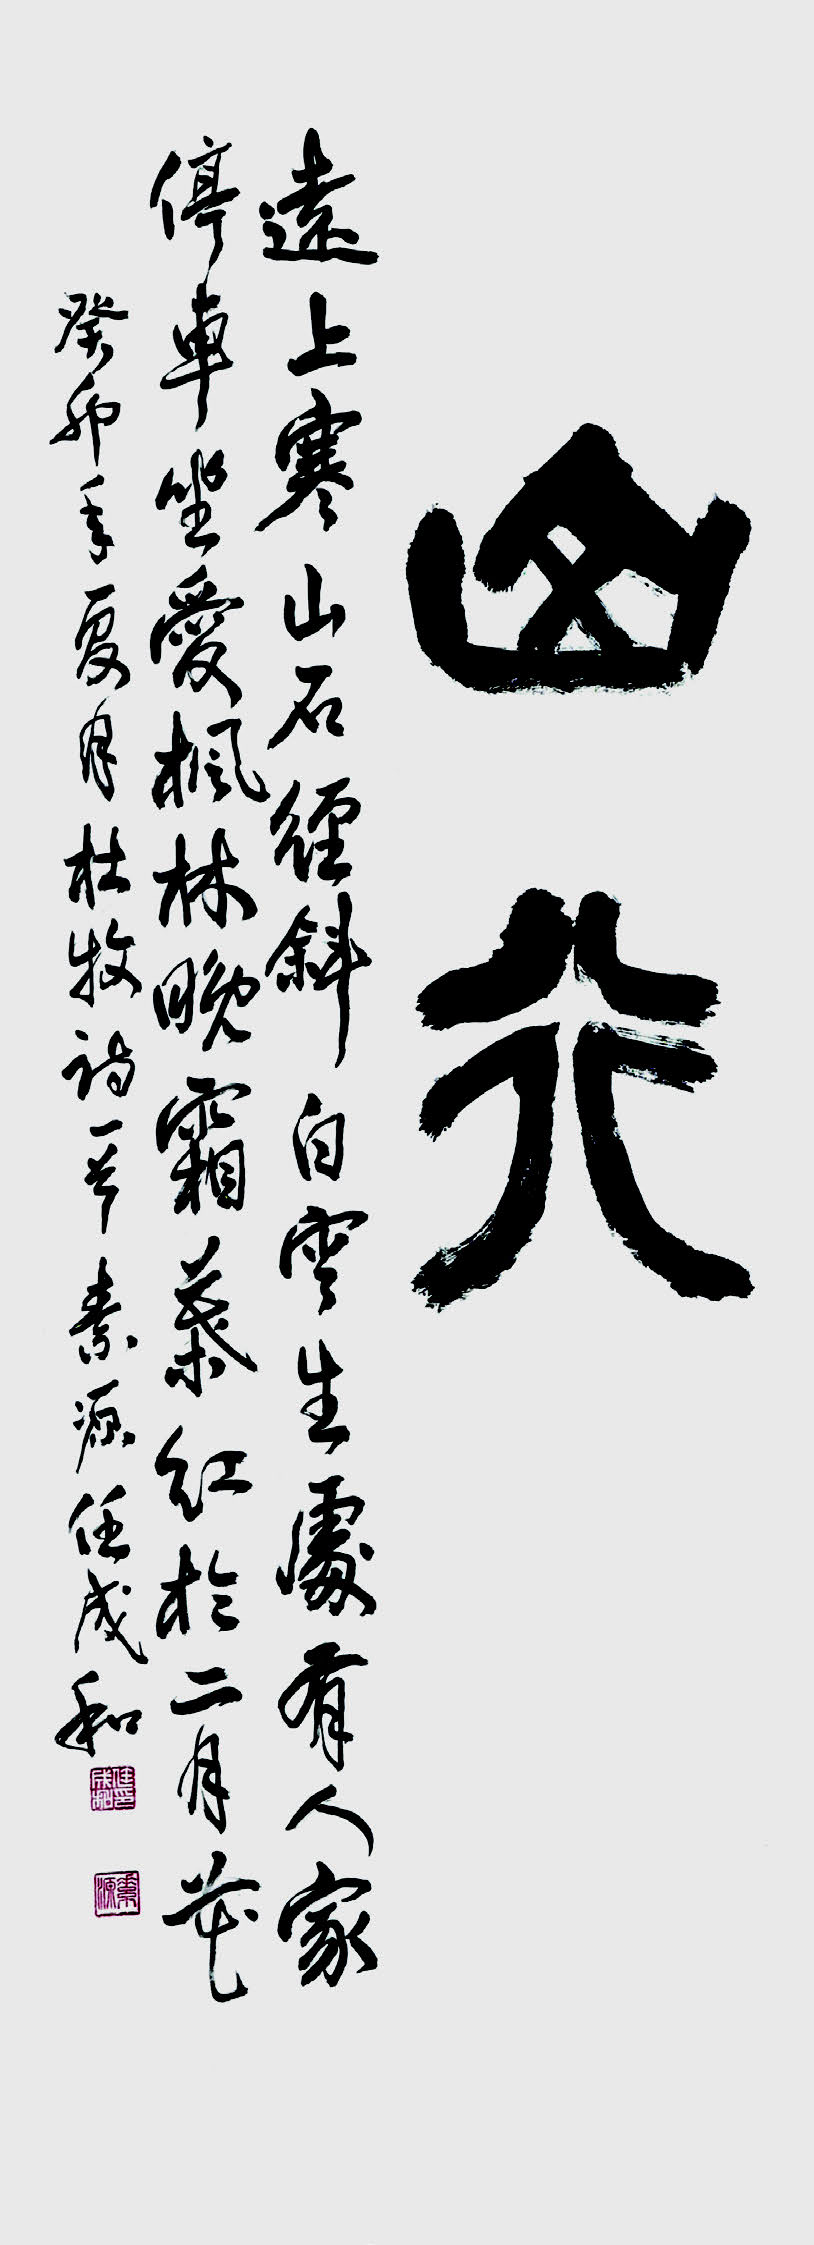 山行
遠上寒山石徑斜白雲生處有人家
停車坐愛楓林晚霜葉紅於二月花
癸卯年夏月杜牧詩一首素源任成和
任成和印
素源